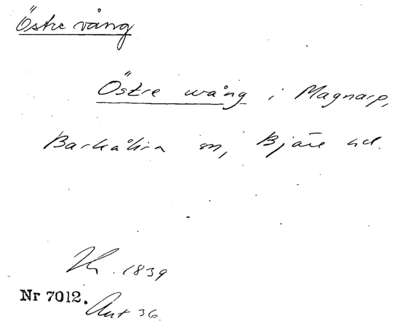 Östre vång
Östre wång i Magnarp,
Barkåkra sn, Bjäre hd.
1839
Nr 7012.
Ant 36